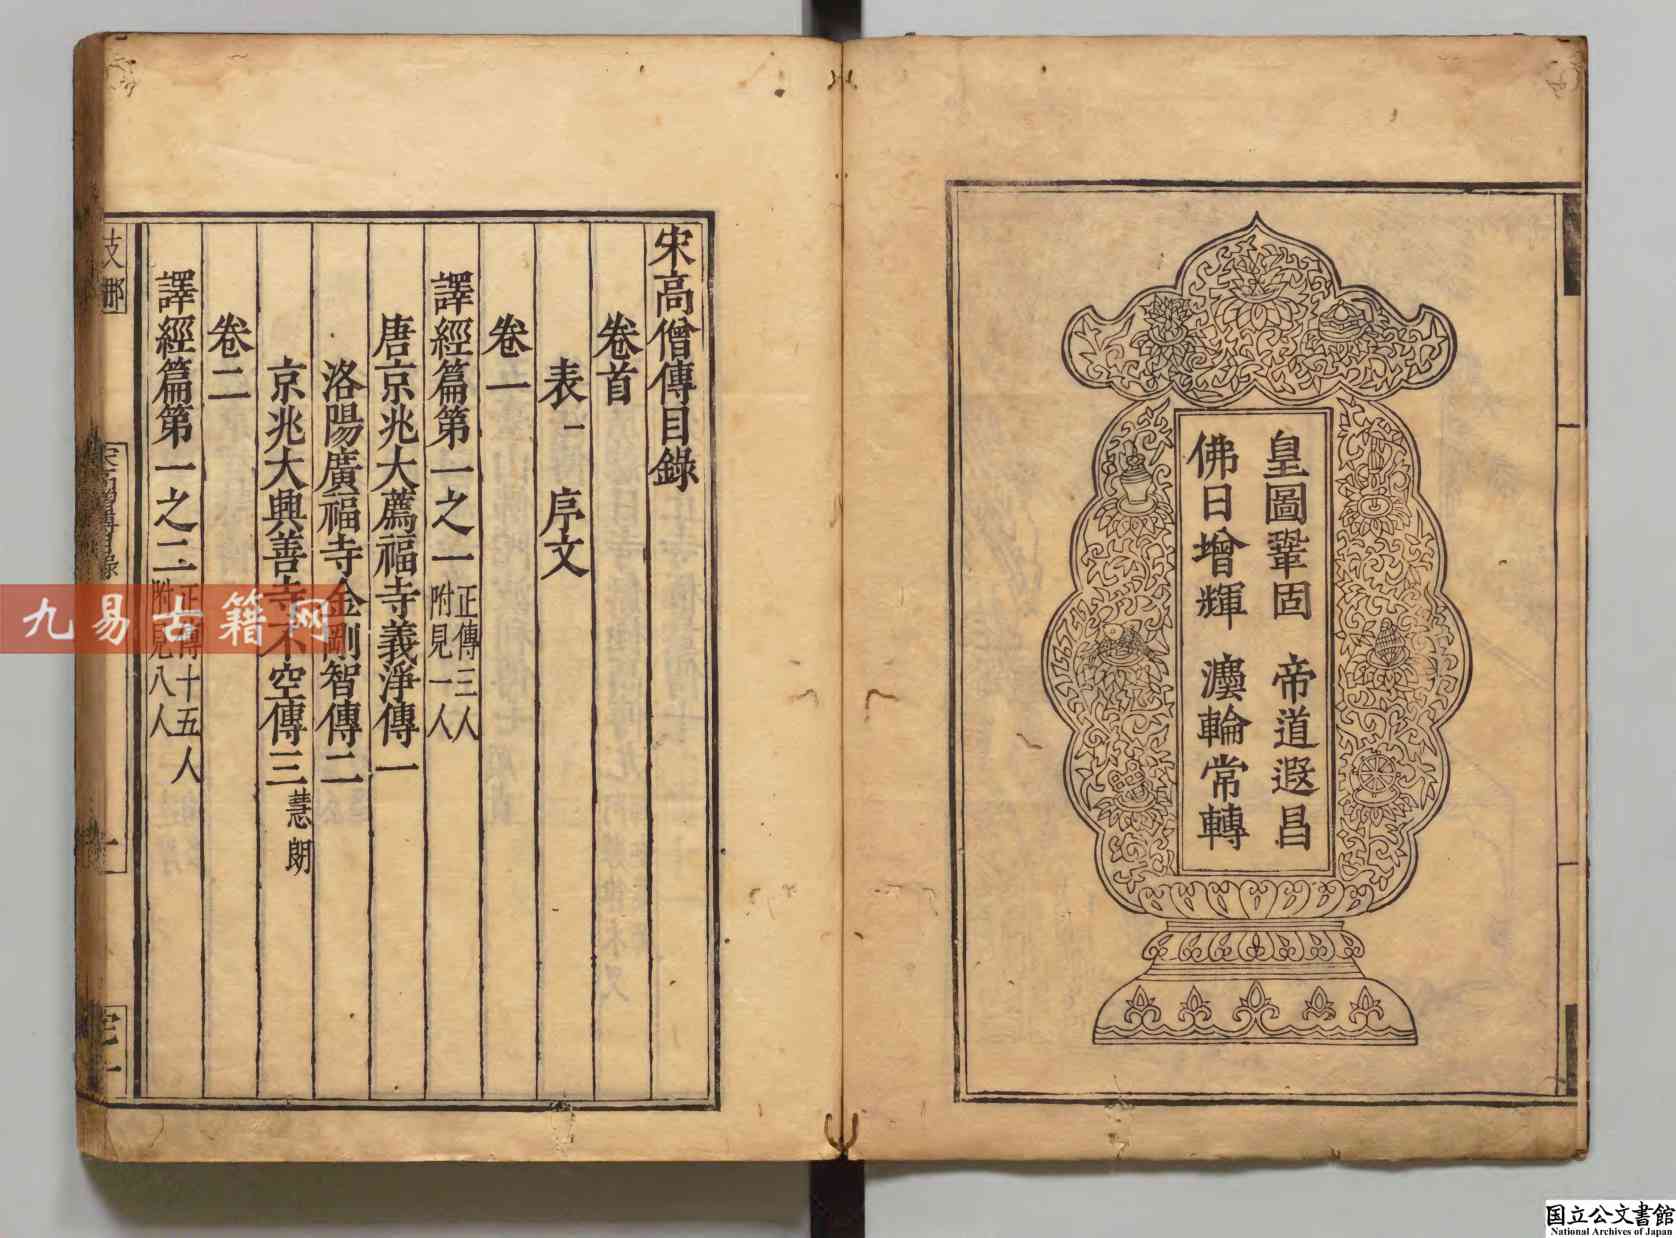 皇圖鞏固　帝道遐昌
佛日增輝　法輪常轉
宋高僧傳目錄
卷首
表一　序文
卷一
譯經篇第一之一　正傳三人　附見一人
唐京兆大薦福寺義淨傳一
洛陽廣福寺金剛智傳二
京兆大興善寺不空傳三　慧朗
卷二
譯經篇第一之二　正傳十五人　附見八人
支那
宋高僧傳目錄
一
九易古籍网
国立公文書館
National Archives of Japan